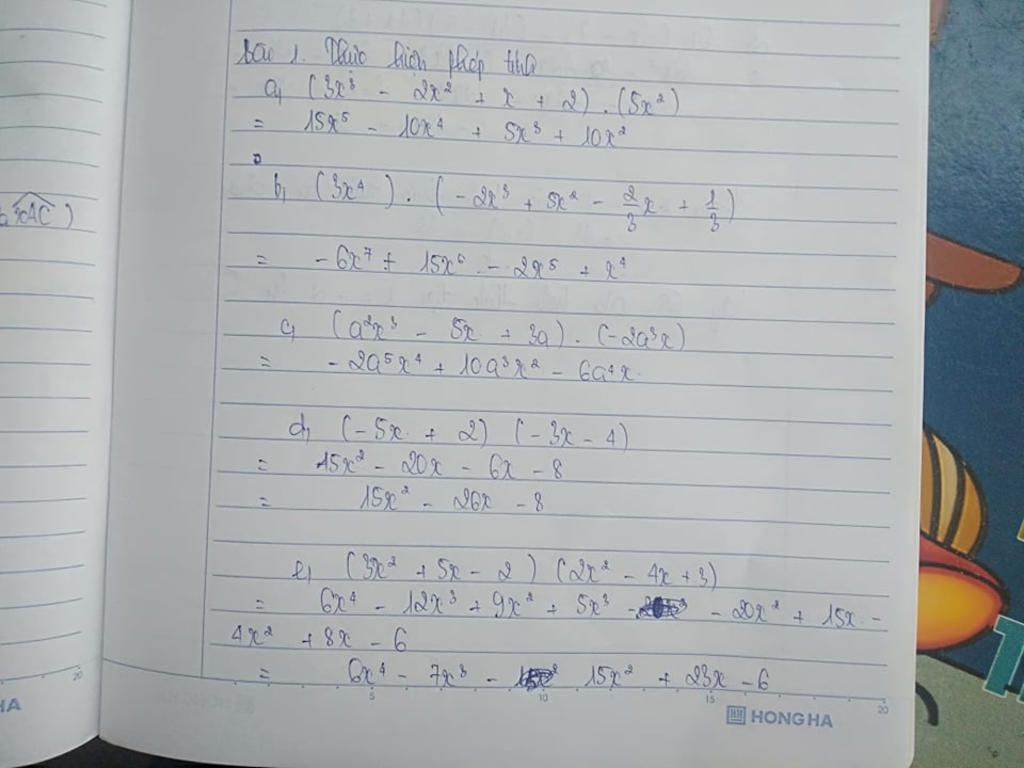 Bài 1. Thực hiện phép tính
a, (3x³ - 2x² + x + 2) . (5x²)
= 15x⁵ - 10x⁴ + 5x³ + 10x²
b, (3x⁴) . (-2x³ + 5x² - 2/3 x + 1/3)
xAC)
= -6x⁷ + 15x⁶ - 2x⁵ + x⁴
c, (a²x³ - 5x + 3a) . (-2a³x)
= -2a⁵x⁴ + 10a³x² - 6a⁴x
d, (-5x + 2) (-3x - 4)
= 15x² - 20x - 6x - 8
= 15x² - 26x - 8
e, (3x² + 5x - 2) (2x² - 4x + 3)
= 6x⁴ - 12x³ + 9x² + 5x³ - 20x² + 15x -
4x² + 8x - 6
= 6x⁴ - 7x³ - 15x² + 23x - 6
20
5 10 15 20
HONG HA
HA